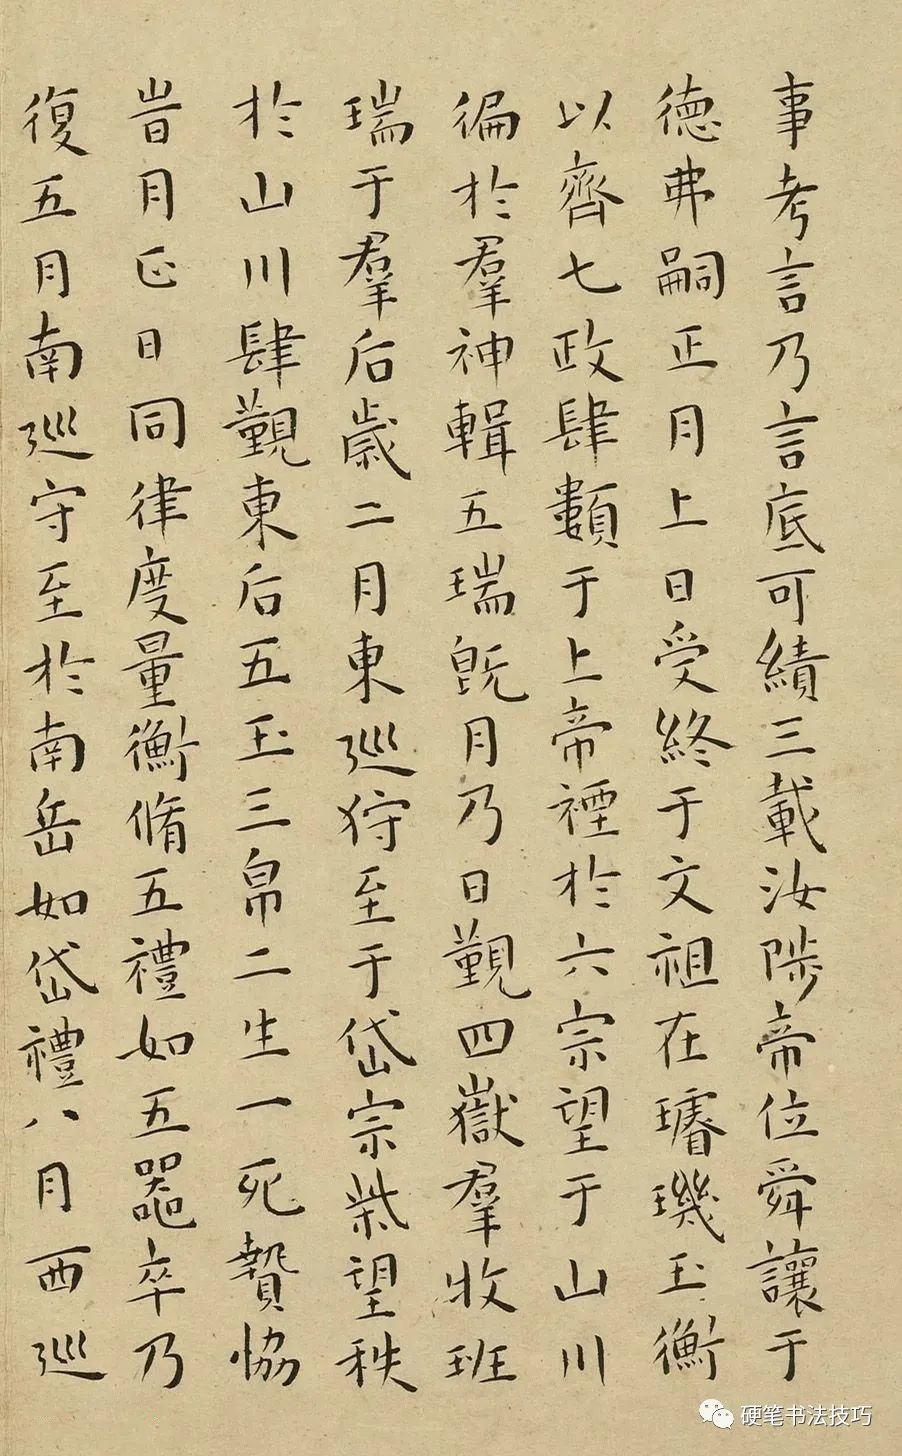 事考言乃言底可績三載汝陟帝位舜讓于
德弗嗣正月上日受終于文祖在璿璣玉衡
以齊七政肆類于上帝禋於六宗望于山川
徧於羣神輯五瑞旣月乃日覲四嶽羣牧班
瑞于羣后歲二月東巡狩至于岱宗柴望秩
於山川肆覲東后五玉三帛二生一死贄恊
旹月正日同律度量衡脩五禮如五器卒乃
復五月南巡守至於南岳如岱禮八月西巡
硬笔书法技巧